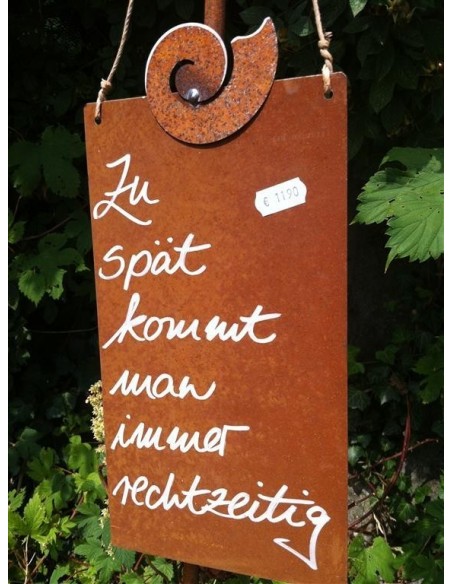 € 11.90
Zu
spät
kommt
man
immer
rechtzeitig